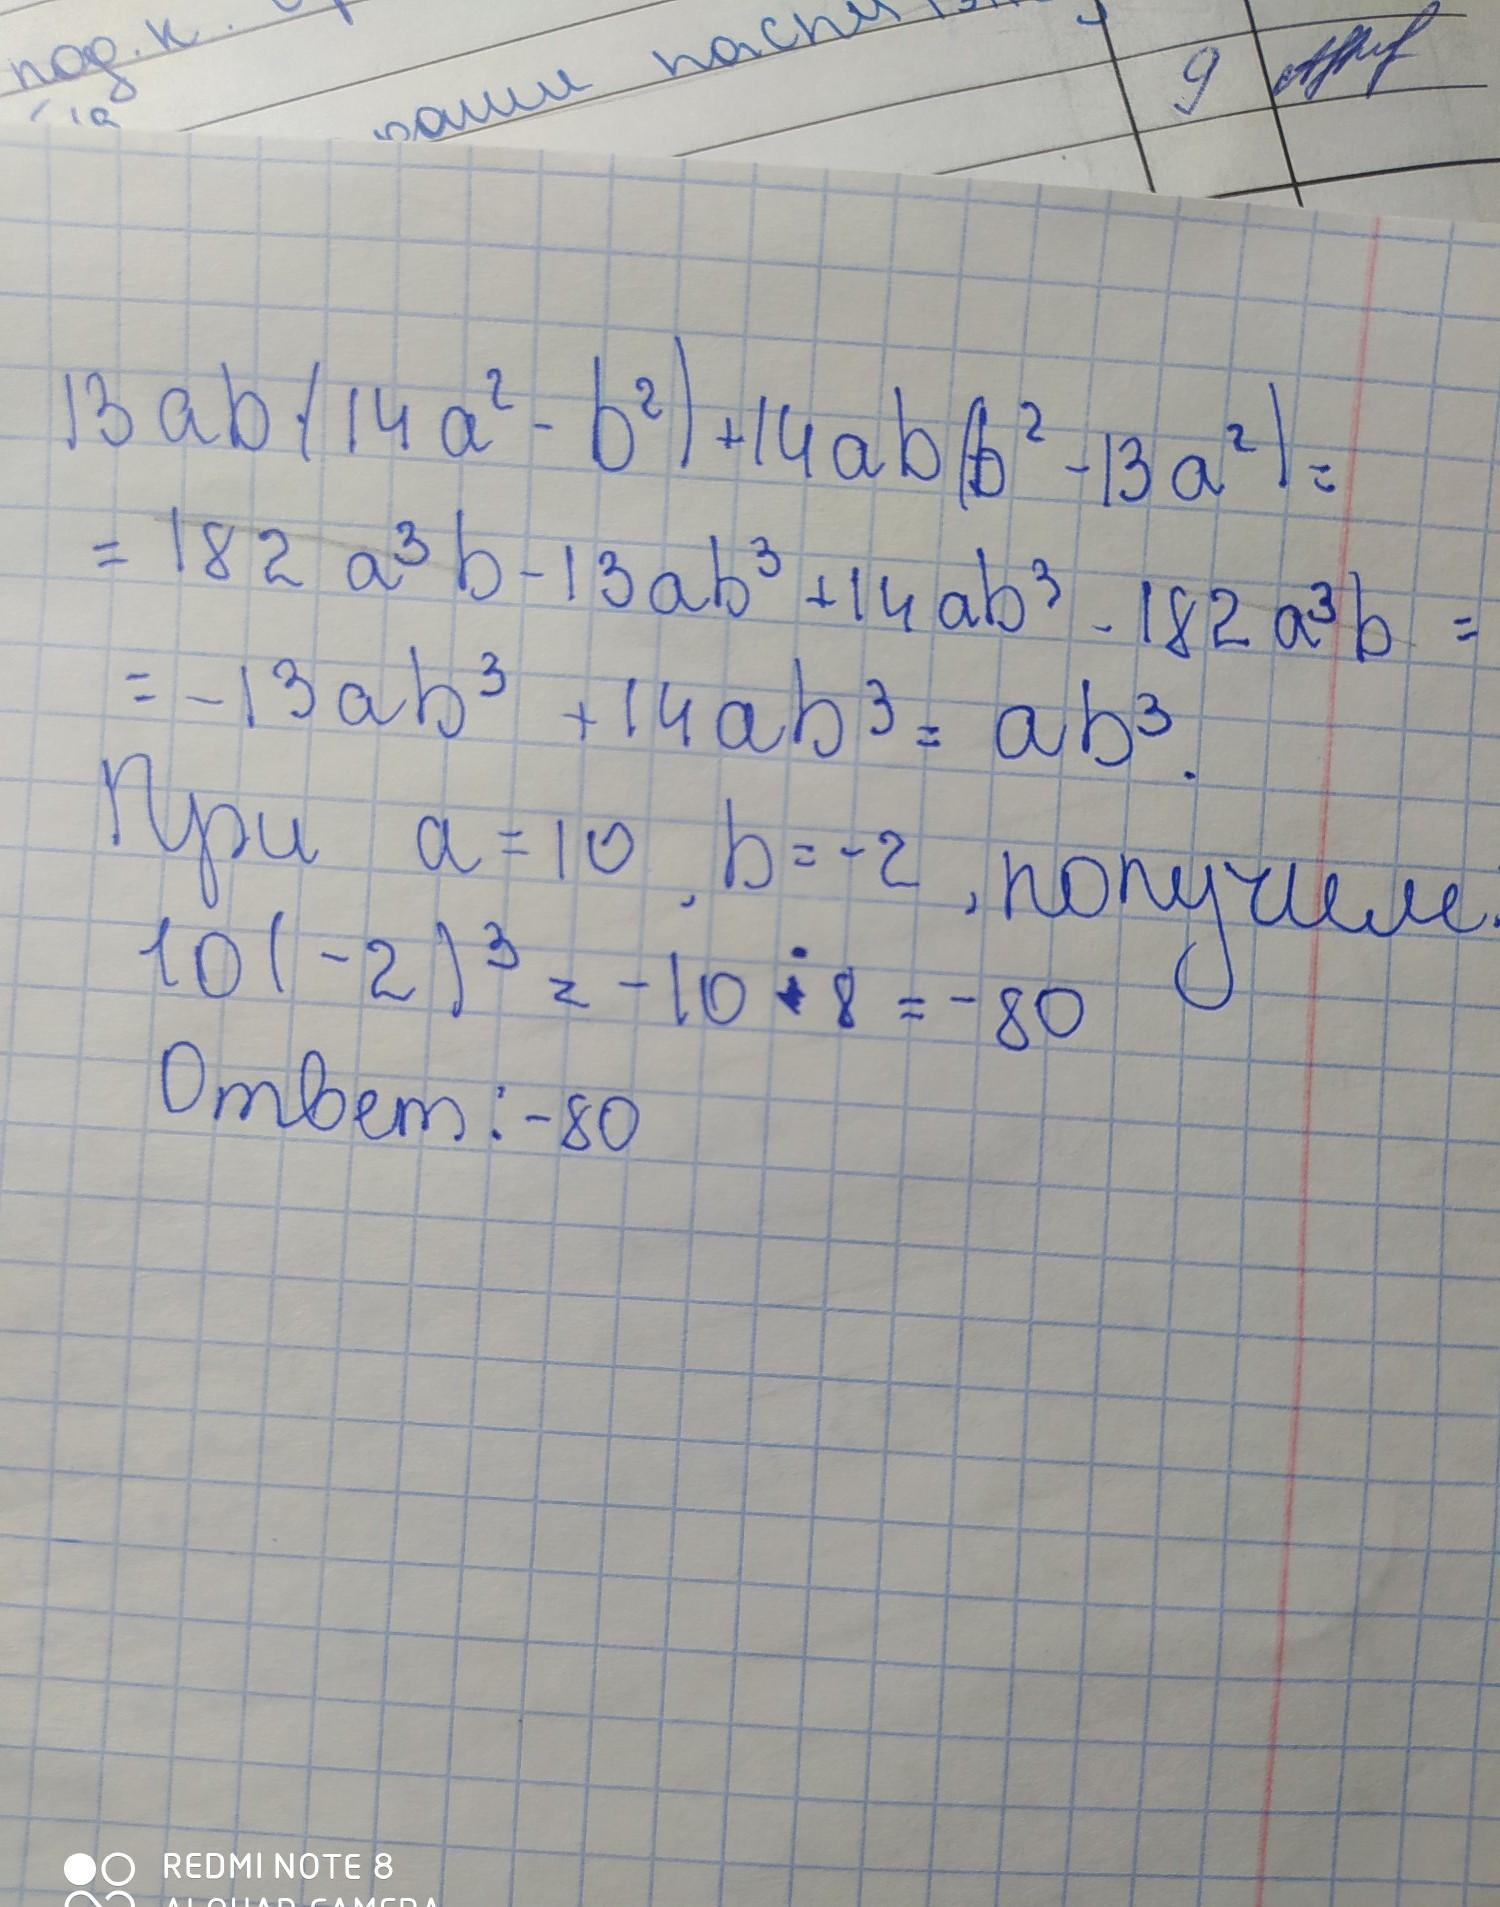 под.к.
9
13ab(14a² - b²)+14ab(b² -13a²)=
= 182 a³b -13ab³ +14ab³ - 182a³b =
= -13ab³ +14ab³ = ab³.
При a=10, b=-2, получим:
10(-2)³ = -10 · 8 = -80
Ответ: -80
REDMI NOTE 8
AI QUAD CAMERA